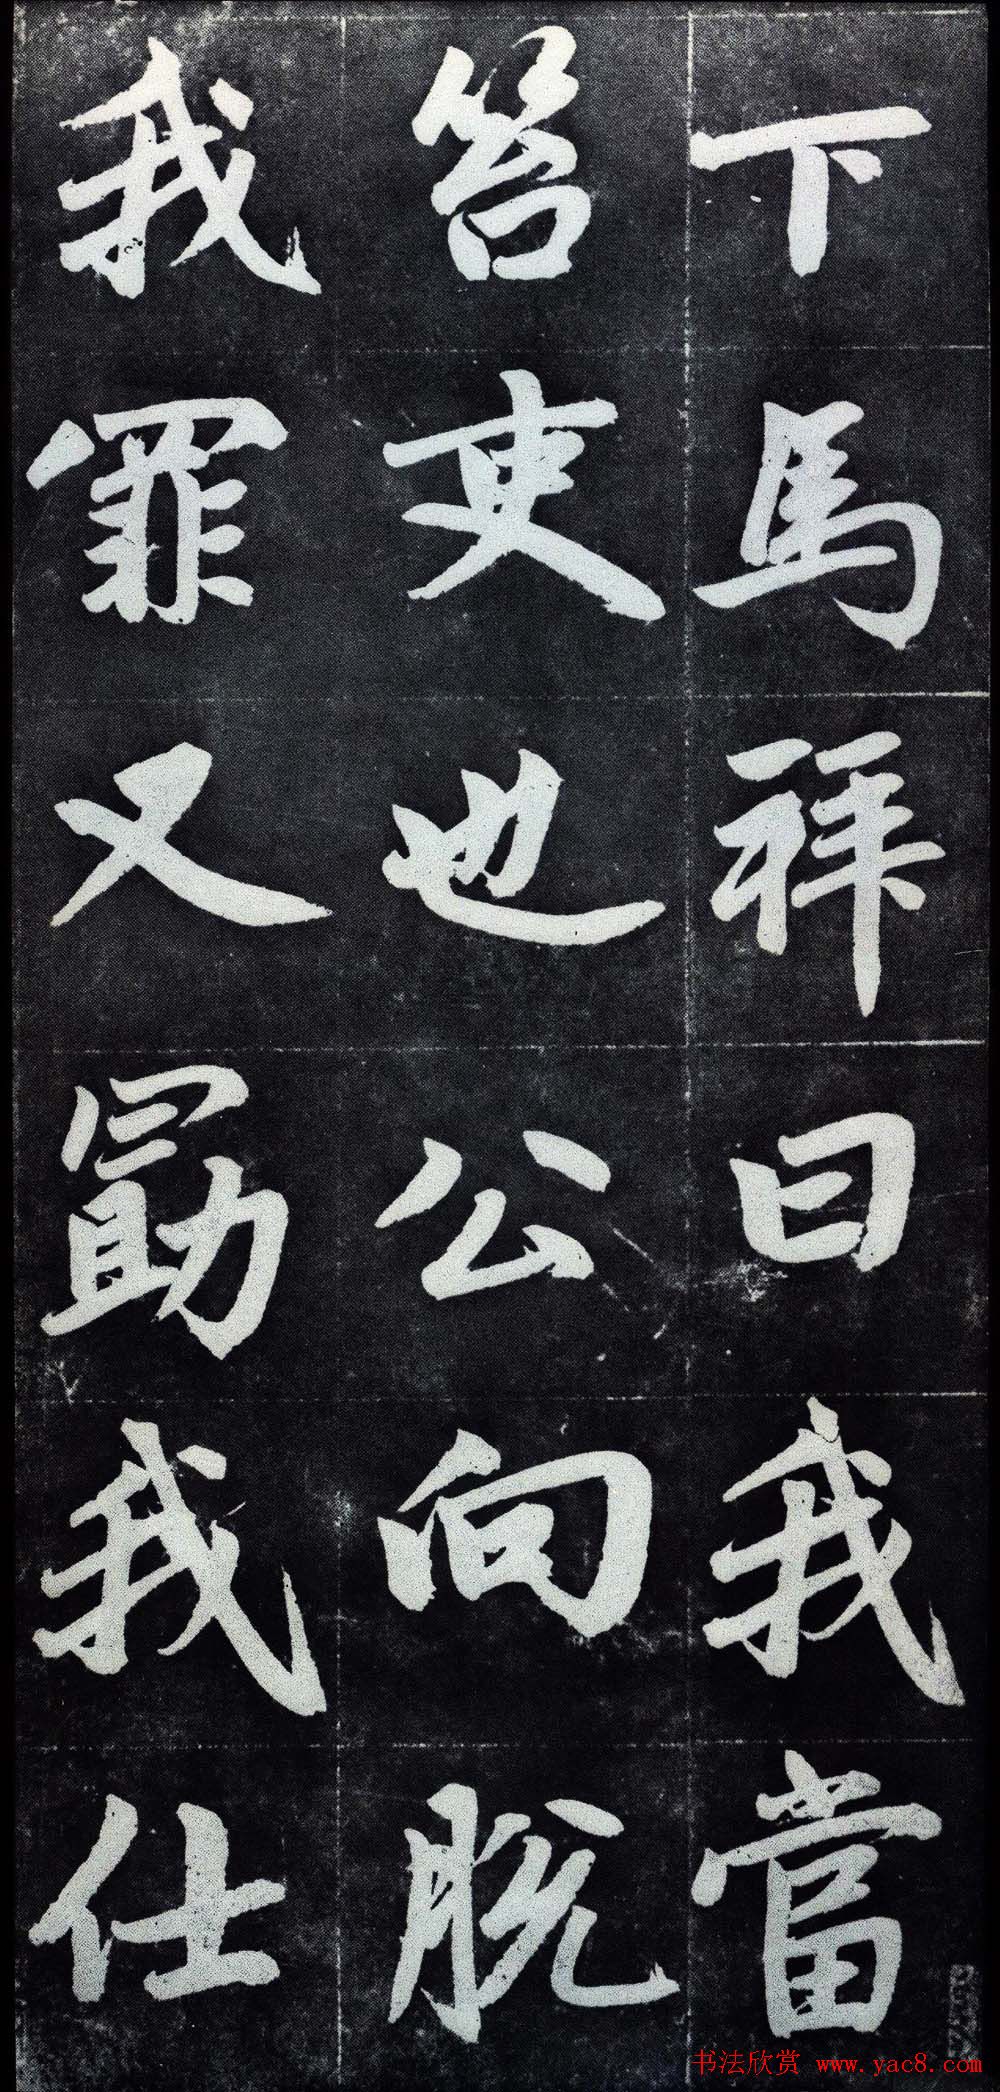 下馬拜曰我當
笞吏也公向脫
我罪又勖我仕
书法欣赏 www.yac8.com